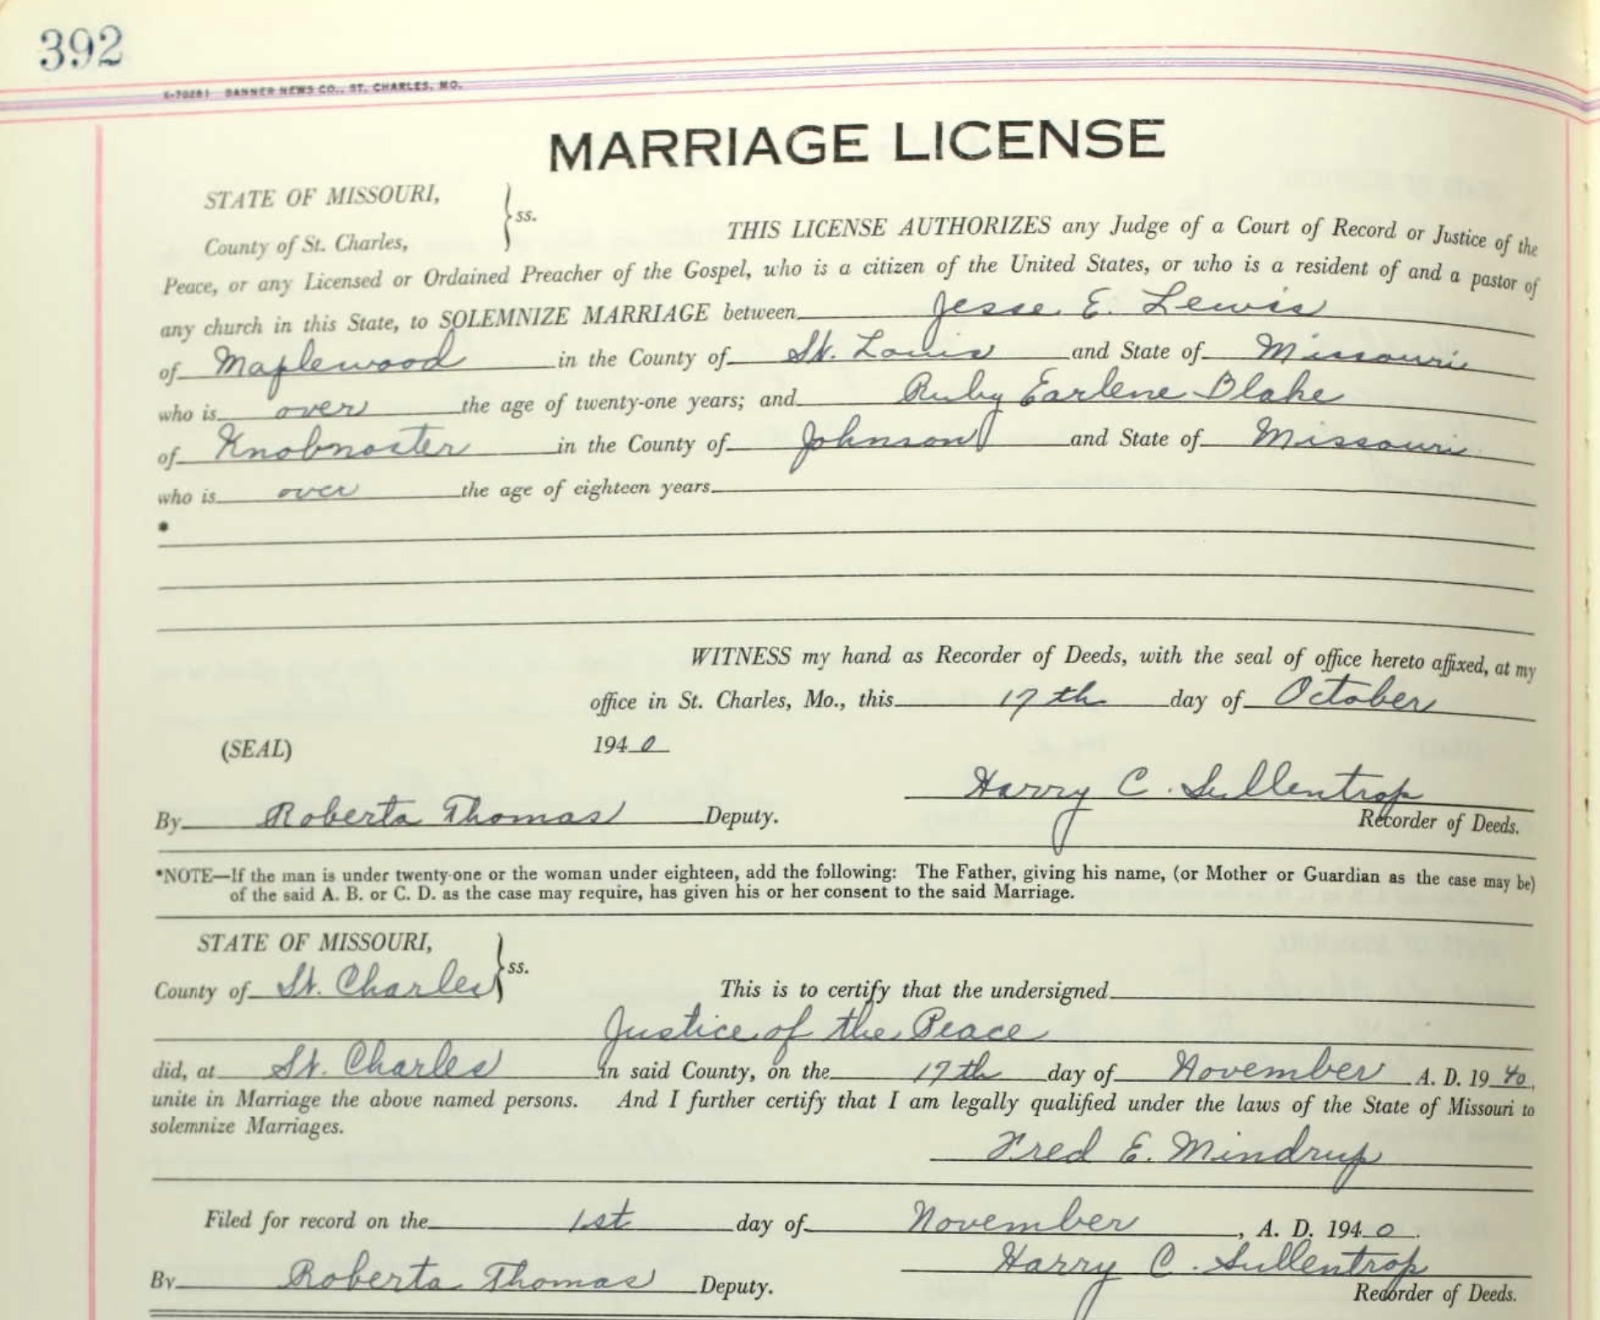 392
K-70281 BANNER NEWS CO., ST. CHARLES, MO.
MARRIAGE LICENSE
STATE OF MISSOURI,
County of St. Charles, } ss.
THIS LICENSE AUTHORIZES any Judge of a Court of Record or Justice of the
Peace, or any Licensed or Ordained Preacher of the Gospel, who is a citizen of the United States, or who is a resident of and a pastor of
any church in this State, to SOLEMNIZE MARRIAGE between Jesse E. Lewis
of Maplewood in the County of St. Louis and State of Missouri
who is over the age of twenty-one years; and Ruby Earlene Blake
of Knobnoster in the County of Johnson and State of Missouri
who is over the age of eighteen years
*
WITNESS my hand as Recorder of Deeds, with the seal of office hereto affixed, at my
office in St. Charles, Mo., this 17th day of October
(SEAL) 1940
Harry C. Sullentrop
By Roberta Thomas Deputy. Recorder of Deeds.
*NOTE—If the man is under twenty-one or the woman under eighteen, add the following: The Father, giving his name, (or Mother or Guardian as the case may be)
of the said A. B. or C. D. as the case may require, has given his or her consent to the said Marriage.
STATE OF MISSOURI,
County of St. Charles } ss. This is to certify that the undersigned
Justice of the Peace
did, at St. Charles in said County, on the 17th day of November A. D. 1940,
unite in Marriage the above named persons. And I further certify that I am legally qualified under the laws of the State of Missouri to
solemnize Marriages.
Fred E. Mindrup
Filed for record on the 1st day of November, A. D. 1940.
Harry C. Sullentrop
By Roberta Thomas Deputy. Recorder of Deeds.